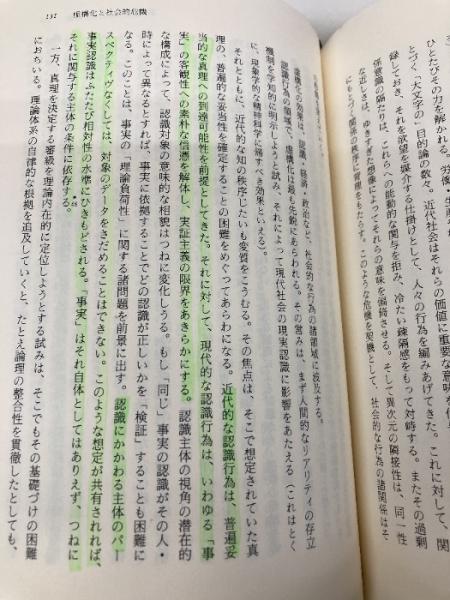 ひとたびその力を解かれる。労働・生産
とづく「大文字の」目的論の数々。近代社会はそれらの価値に重要な意味を
録しておき、それを欲望を媒介する仕掛けとして、人々の行為を編みあげてきた。これに対して、関
係意識の隔たりは、これらへの能動的な関与を拒み、冷たい疎隔感をもって対峙する。またその過剰
な近しさは、ゆきすぎた想像によってそれらの意味を偏倚させる。そして異次元の隣接性は、同一性
にもとづく関係の秩序に変更をもたらす。このような危機を契機として、社会的な行為の諸関係はそ
虚構化の効果は、認識、経済、政治など、社会的な行為の諸領域に波及する。
認識行為の領域で、虚構化は最も先鋭にあらわれる。その営みは、まず人間的なリアリティの存立
機制を学知的に明示しようと試み、それによって現代社会の現実認識に影響をあたえる（これはとく
に、現象学的な精神科学に帰すべき効果といえる）。
それとともに、近代的な知の秩序じたいも変質をこうむる。その焦点は、そこで想定されていた真
理の、普遍的な妥当性を確定することの困難をめぐってあらわになる。近代的な認識行為は、普遍妥
当的な真理への到達可能性を前提としてきた。それに対して、現代的な認識行為は、いわゆる「事
実」の客観性への素朴な信憑を解体し、実証主義の限界をあきらかにする。認識主体の視角の潜在的
な構成によって、認識対象の意味的な相貌はつねに変化しうる。もし「同じ」事実の認識がその人・
時によって異なるとすれば、事実に依拠することでどの認識が正しいかを「検証」することも困難に
なる。このことは、事実の「理論負荷性」に関する諸問題を前景に出す。認識にかかわる主体のパー
スペクティヴなくしては、対象のデータをさだめることはできない。このような想定が共有されれば、
事実認識はふたたび相対性の水準にひきもどされる。「事実」はそれ自体としてはありえず、つねに
それに関与する主体の条件に依存する。
一方、真理を決定する審級を理論内在的に定位しようとする試みは、そこでもその基礎づけの困難
におちいる。理論体系の自律的な根拠を追及していくと、たとえ論理の整合性を貫徹したとしても、
131 虚構化と社会的危機